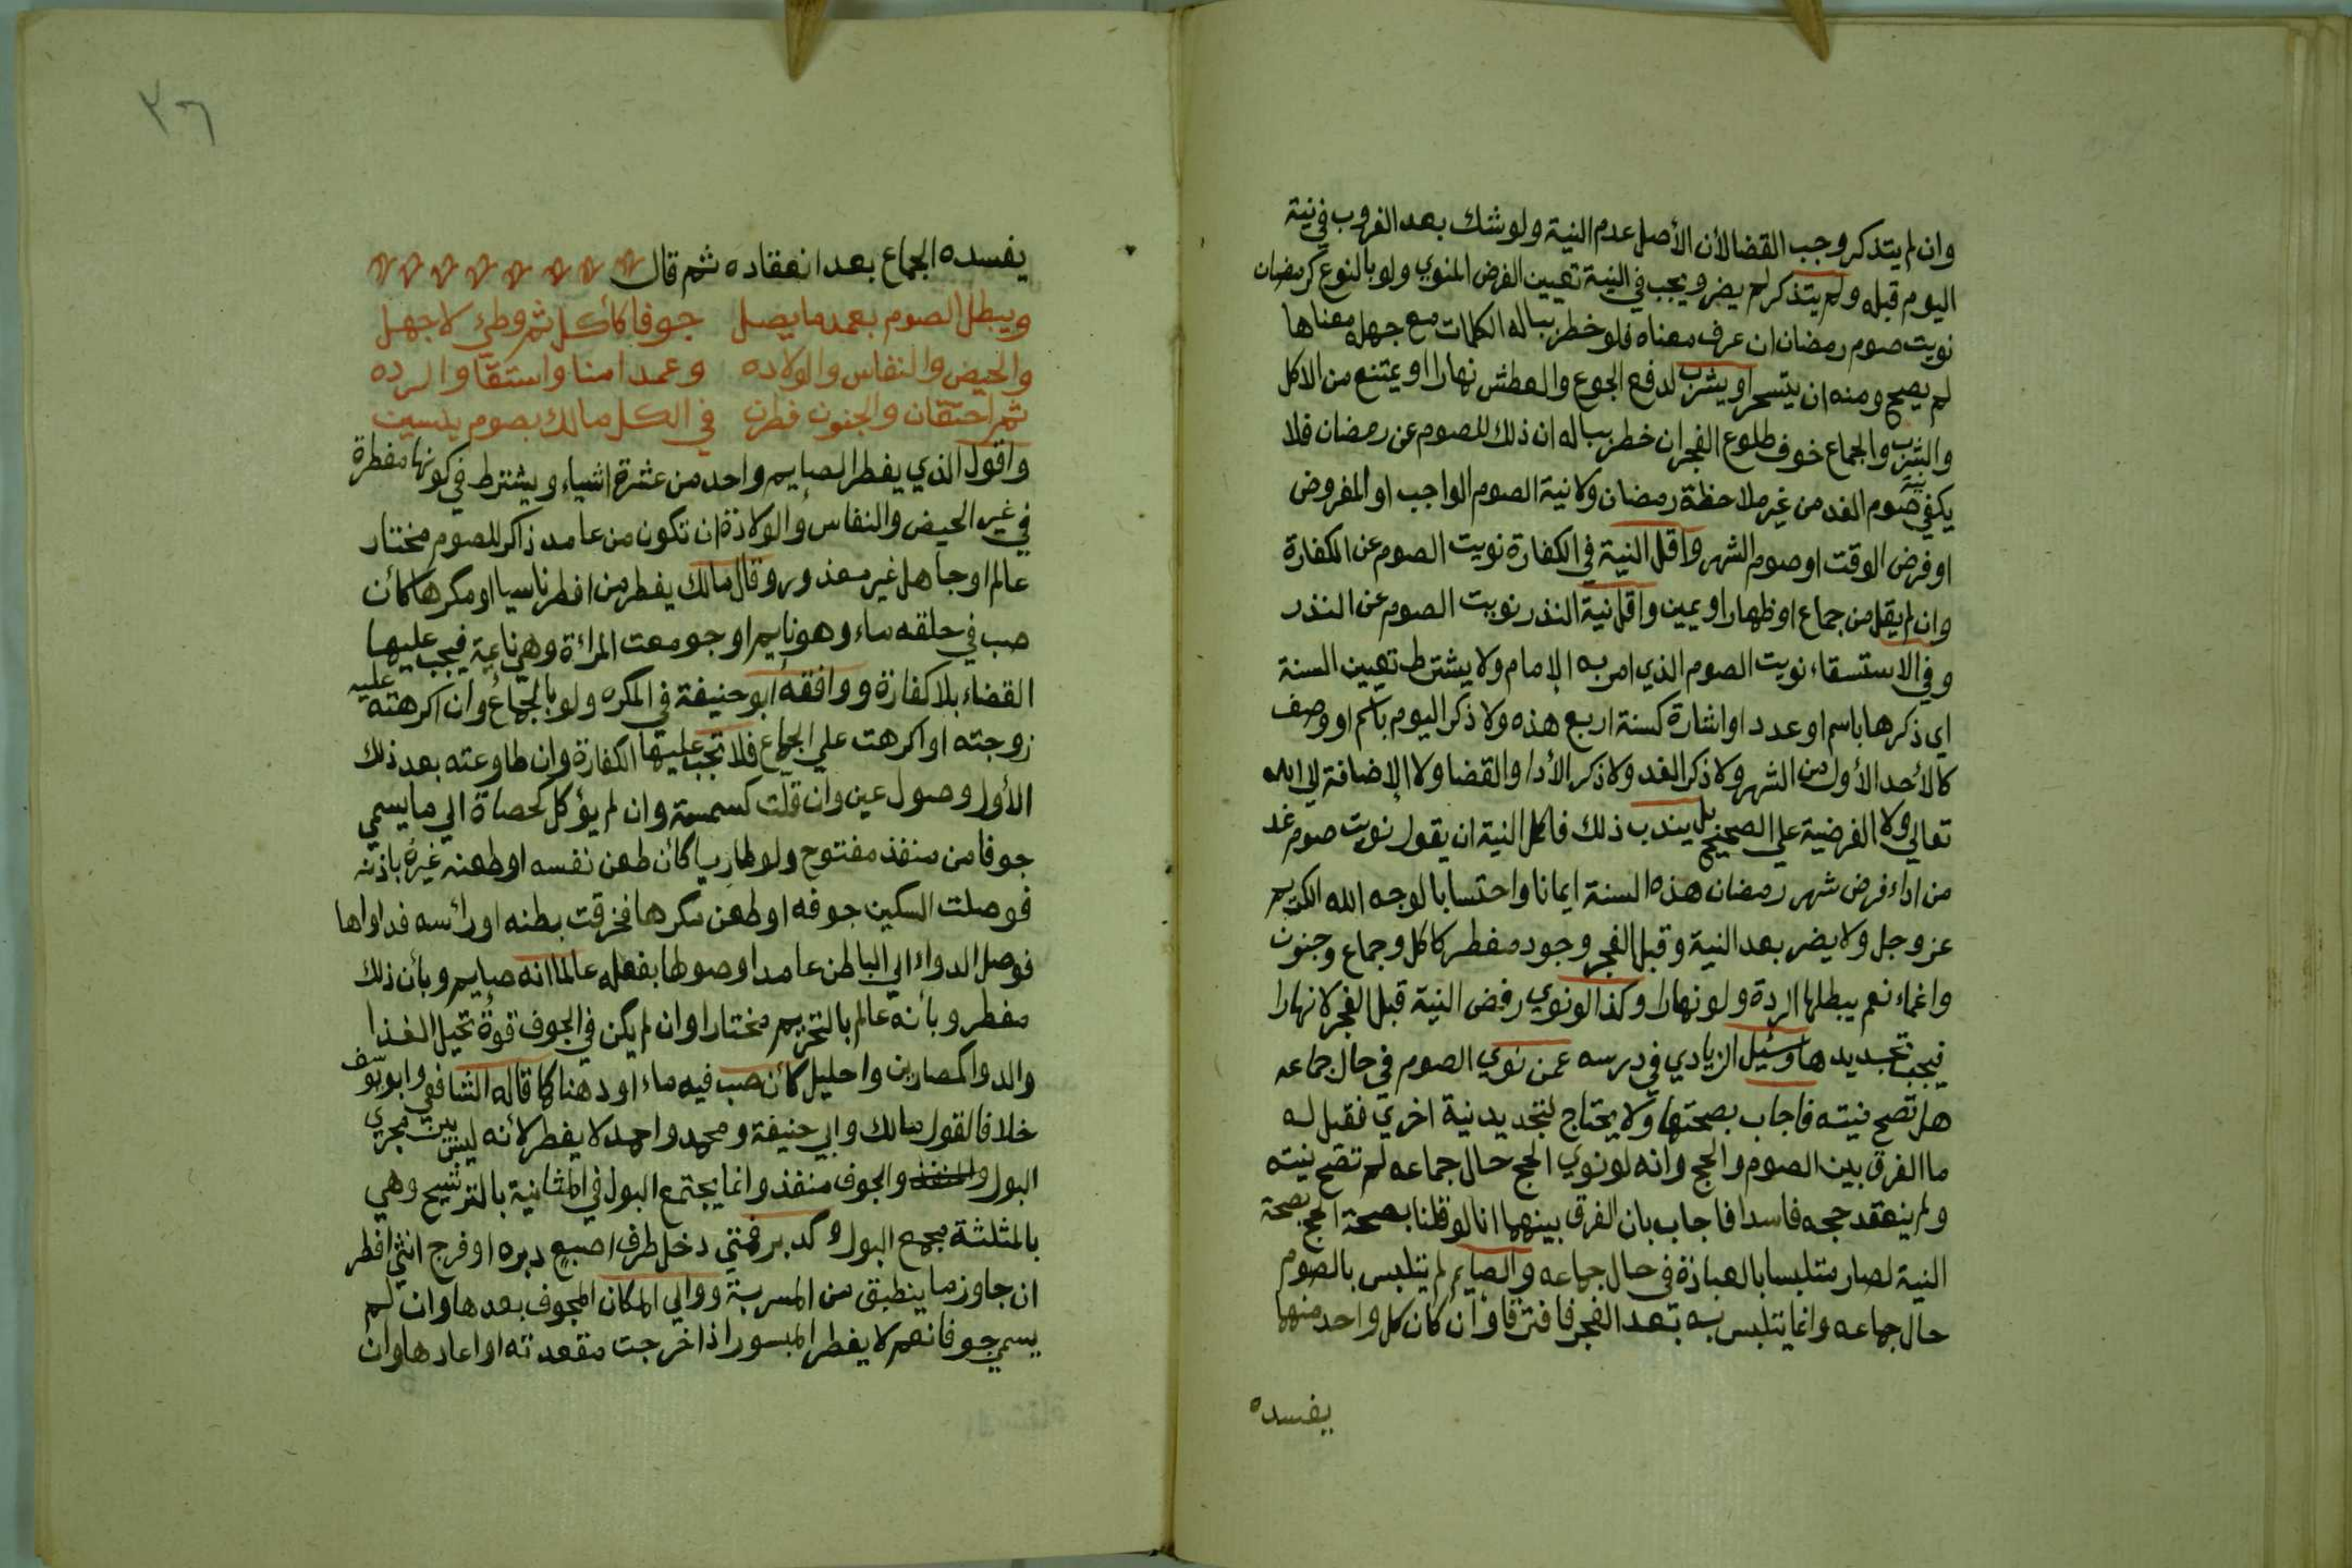 وان لم يتذكر وجب القضا لأن الأصل عدم النية ولو شك بعد الغروب في نية
اليوم قبله ولم يتذكر لم يضر ويجب في النية تعيين الفرض المنوي ولو بالنوع كرمضان
نويت صوم رمضان ان عرف معناه فلو خطر بباله الكلمات مع جهله معناها
لم يصح ومنه ان يتسحر او يشرب لدفع الجوع والعطش نهارا او يمتنع من الاكل
والشرب والجماع خوف طلوع الفجر ان خطر بباله ان ذلك للصوم عن رمضان فلا
يكفي نية صوم الغد من غير ملاحظة رمضان ولا نية الصوم الواجب او المفروض
او فرض الوقت او صوم الشهر واقل النية في الكفارة نويت الصوم عن الكفارة
وان لم يقل من جماع او ظهار او يمين واقل نية النذر نويت الصوم عن النذر
وفي الاستسقاء نويت الصوم الذي امر به الإمام ولا يشترط تعيين السنة
اي ذكرها باسم او عدد او اشارة كسنة اربع هذه ولا ذكر اليوم باسم او وصف
كالأحد الأول من الشهر ولا ذكر الغد ولا ذكر الأداء والقضا ولا الإضافة لى الله
تعالي ولا الفرضية علي الصحيح بل يندب ذلك فاكمل النية ان يقول نويت صوم غد
من اداء فرض شهر رمضان هذه السنة ايمانا واحتسابا لوجه الله الكريم
عز وجل ولا يضر بعد النية وقبل الفجر وجود مفطر كاكل وجماع وجنون
واغماء نعم يبطلها الردة ولو نهارا وكذا لو نوي رفض النية قبل الفجر لا نهارا
فيجب تجديدها وسئيل الزيادي في درسه عمن نوي الصوم في حال جماعه
هل تصح نيته فاجاب بصحتها ولا يحتاج لتجديد نية اخري فقيل له
ما الفرق بين الصوم والحج وانه لو نوي الحج حال جماعه لم تصح نيته
ولم ينعقد حجه فاسدا فاجاب بان الفرق بينهما انا لو قلنا بصحة الحج بصحة
النية لصار متلبسا بالعبادة في حال جماعه والصايم لم يتلبس بالصوم
حال جماعه وانما يتلبس به بعد الفجر فافترقا وان كان كل واحد منهما
يفسده
٢٦
يفسده الجماع بعد انعقاده ثم قال
ويبطل الصوم بعمد ما يصل جوفا كأكل ثم وطئ لا جهل
والحيض والنفاس والولاده وعمدا منا واستقا والرده
ثم احتقان والجنون فطرن في الكل مالك بصوم يلسين
واقول الذي يفطر الصايم واحد من عشرة اشياء ويشترط في كونها مفطرة
في غير الحيض والنفاس والولادة ان تكون من عامد ذاكر للصوم مختار
عالم او جاهل غير معذور وقال مالك يفطر من افطر ناسيا او مكرها كأن
صب في حلقه ماء وهو نايم او جومعت المرأة وهي نايمة فيجب عليها
القضاء بلا كفارة ووافقه ابو حنيفة في المكره ولو بالجماع وان اكرهته عليه
زوجته او اكرهت علي الجماع فلا تجب عليها الكفارة وان طاوعته بعد ذلك
الأول وصول عين وان قلت كسمسمة وان لم يؤكل كحصاة الي ما يسمي
جوفا من منفذ مفتوح ولو طاريا كأن طعن نفسه او طعنه غيره باذنه
فوصلت السكين جوفه او طعن مكرها فخرقت بطنه او رأسه فداواها
فوصل الدواء الي الباطن عامدا وصولها بفعله عالما انه صايم وبأن ذلك
مفطر وبأنه عالم بالتحريم مختارا وان لم يكن في الجوف قوة تحيل الغذا
والدوا كمصارين واحليل كأن صب فيه ماء او دهنا كما قاله الشافعي وابو يوسف
خلافا لقول مالك وابي حنيفة ومحمد واحمد لا يفطر لأنه ليس بين مجري
البول والجوف منفذ وانما يجتمع البول في المثانية بالترشيح وهي
بالمثلثة مجمع البول وكدبر فمتي دخل طرف اصبع دبره او فرج انثي افطر
ان جاوز ما ينطبق من المسربة ووالي المكان المجوف بعدها وان لم
يسمي جوفا نعم لا يفطر المبسور اذا خرجت مقعدته او اعادها وان